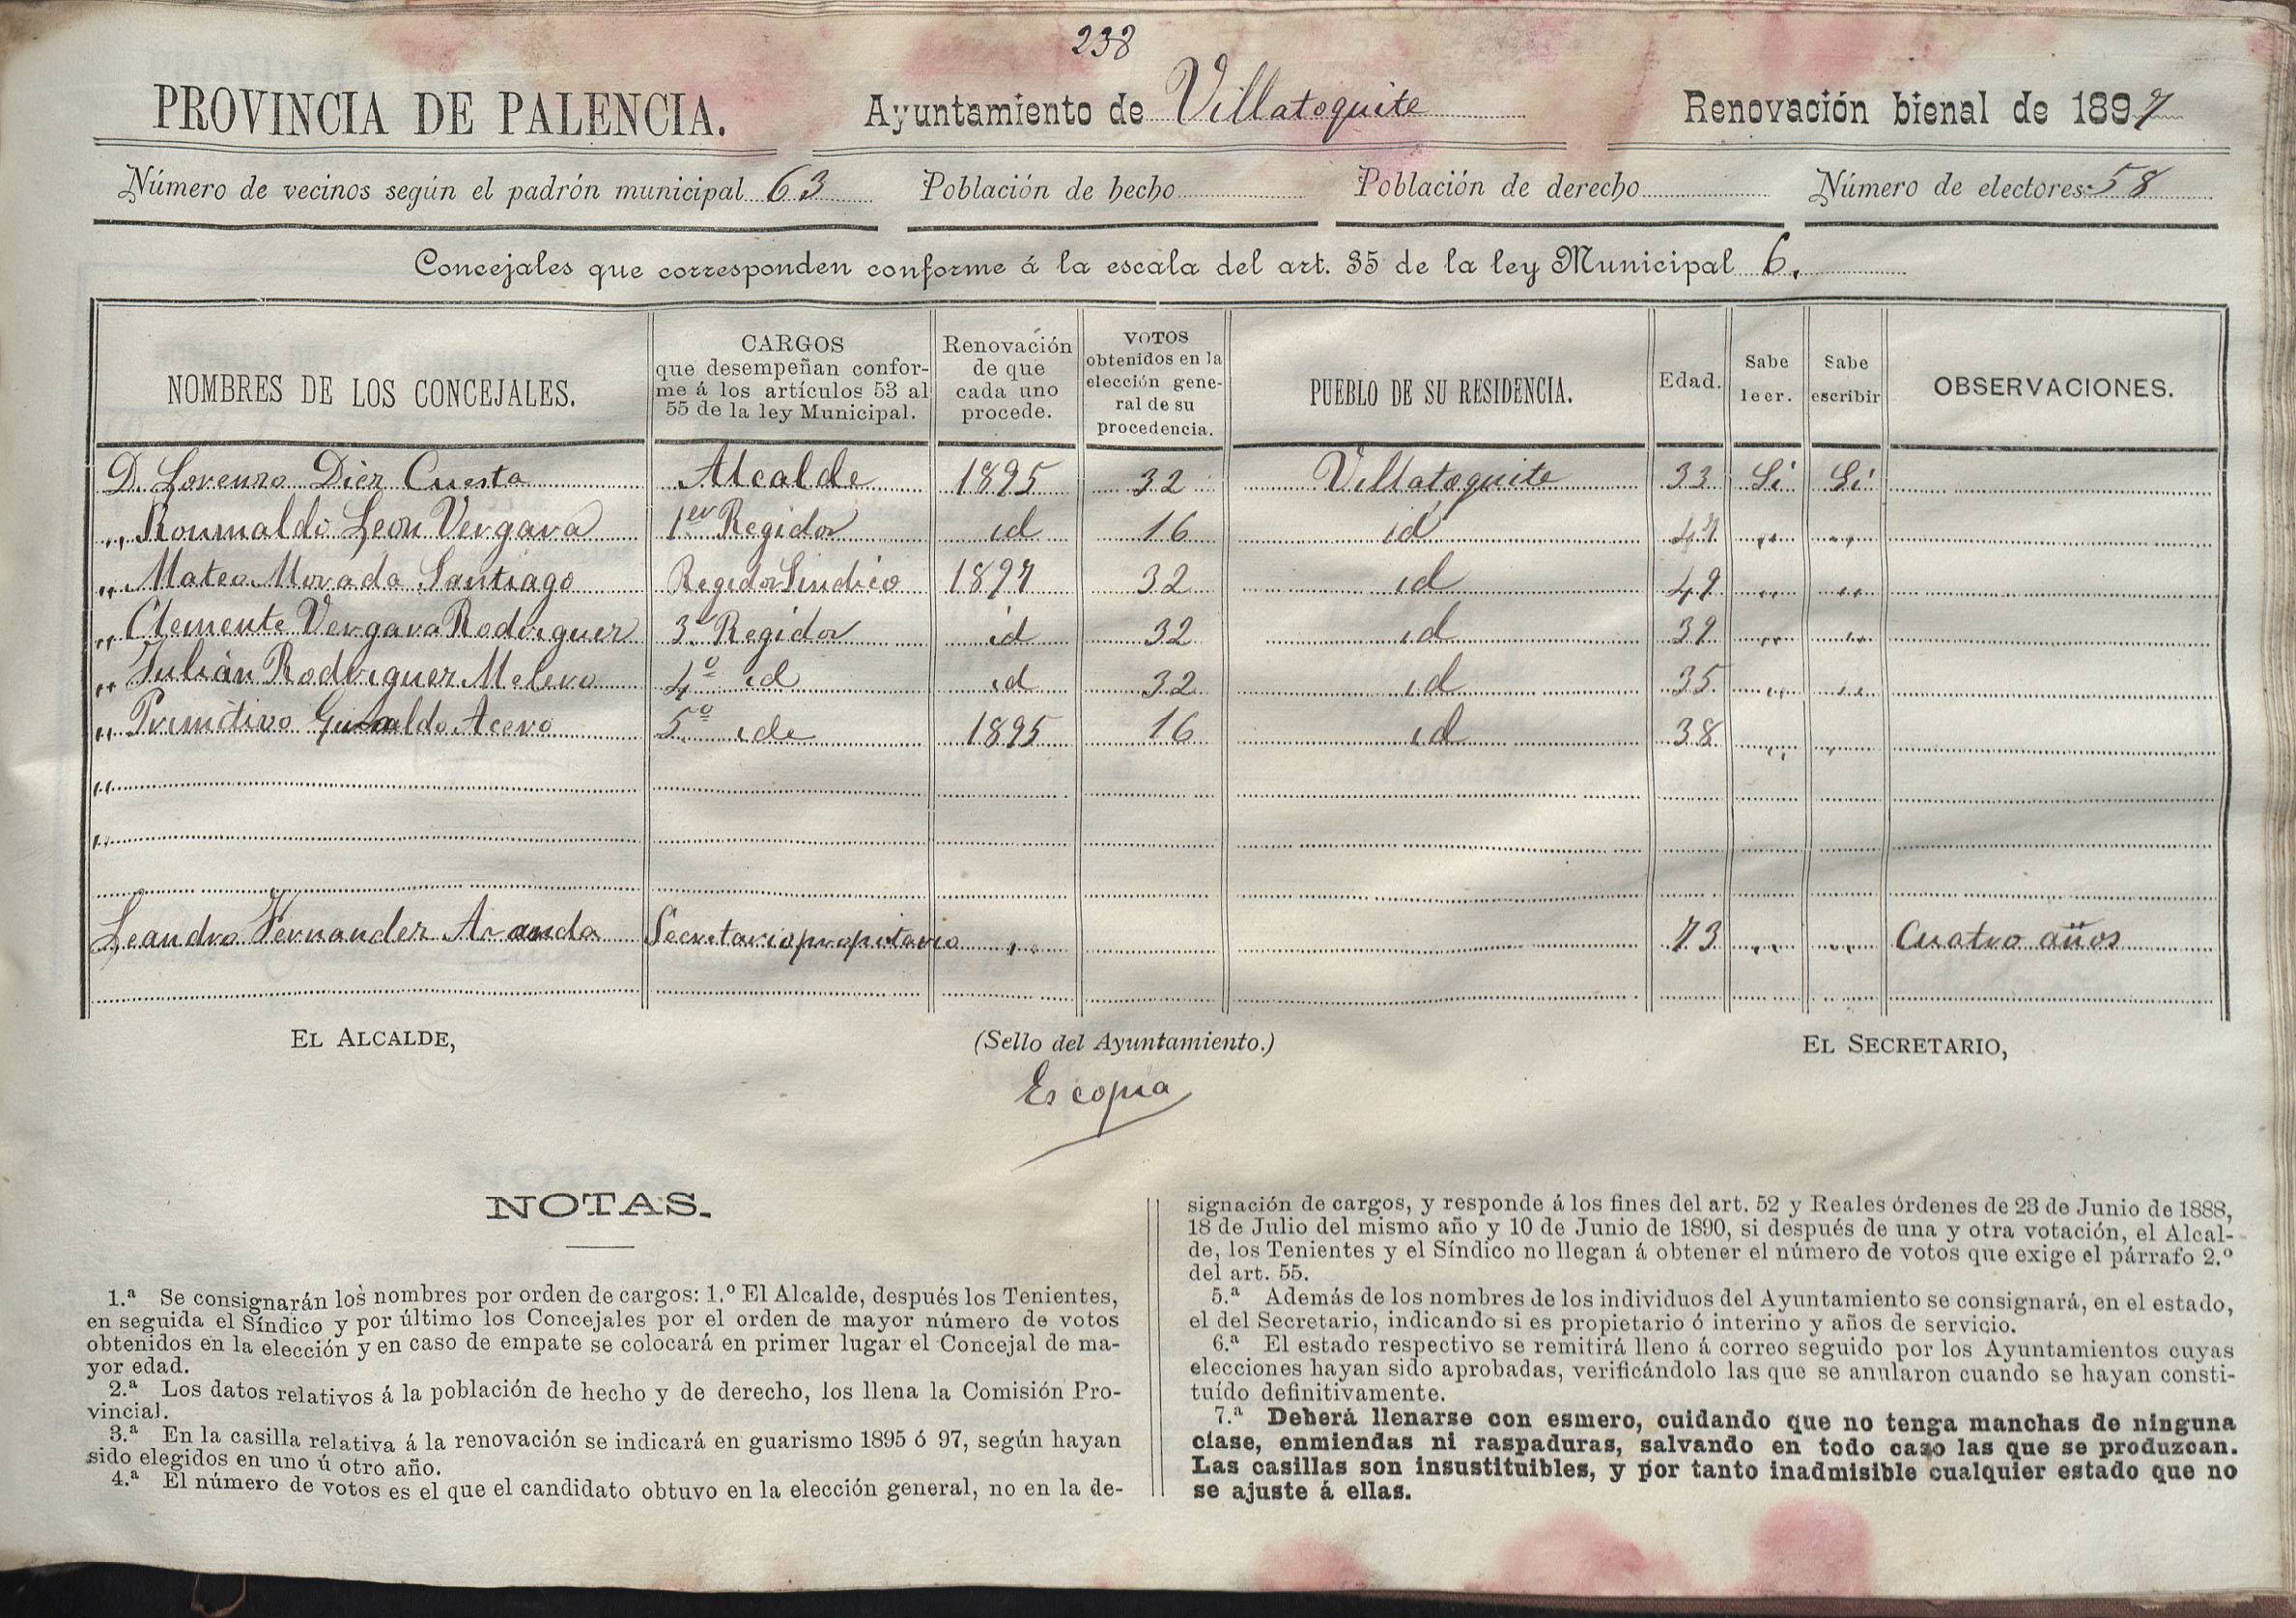 238
PROVINCIA DE PALENCIA. Ayuntamiento de Villatoquite Renovación bienal de 1897
Número de vecinos según el padrón municipal 63 Población de hecho Población de derecho Número de electores: 58
Concejales que corresponden conforme á la escala del art. 35 de la ley Municipal 6.
NOMBRES DE LOS CONCEJALES. CARGOS que desempeñan conforme á los artículos 53 al 55 de la ley Municipal. Renovación de que cada uno procede. VOTOS obtenidos en la elección general de su procedencia. PUEBLO DE SU RESIDENCIA. Edad. Sabe leer. Sabe escribir OBSERVACIONES.
D. Lorenzo Diez Cuesta Alcalde 1895 32 Villatoquite 33 Si Si
„ Roumaldo Leon Vergara 1er Regidor id 16 id 47 „ „
„ Mateo Morada Santiago Regidor Sindico 1897 32 id 49 „ „
„ Clemente Vergara Rodriguez 3º Regidor id 32 id 39 „ „
„ Julián Rodriguez Melero 4º id id 32 id 35 „ „
„ Primitivo Acero 5º ide 1895 16 id 38 „ „
„
„
Leandro Fernandez Aranda Secretario propitario „ 73 „ „ Cuatro años
EL ALCALDE, (Sello del Ayuntamiento.) EL SECRETARIO,
Es copia
NOTAS.
1.ª Se consignarán los nombres por orden de cargos: 1.º El Alcalde, después los Tenientes,
en seguida el Síndico y por último los Concejales por el orden de mayor número de votos
obtenidos en la elección y en caso de empate se colocará en primer lugar el Concejal de ma-
yor edad.
2.ª Los datos relativos á la población de hecho y de derecho, los llena la Comisión Pro-
vincial.
3.ª En la casilla relativa á la renovación se indicará en guarismo 1895 ó 97, según hayan
sido elegidos en uno ú otro año.
4.ª El número de votos es el que el candidato obtuvo en la elección general, no en la de-
signación de cargos, y responde á los fines del art. 52 y Reales órdenes de 23 de Junio de 1888,
18 de Julio del mismo año y 10 de Junio de 1890, si después de una y otra votación, el Alcal-
de, los Tenientes y el Síndico no llegan á obtener el número de votos que exige el párrafo 2.º
del art. 55.
5.ª Además de los nombres de los individuos del Ayuntamiento se consignará, en el estado,
el del Secretario, indicando si es propietario ó interino y años de servicio.
6.ª El estado respectivo se remitirá lleno á correo seguido por los Ayuntamientos cuyas
elecciones hayan sido aprobadas, verificándolo las que se anularon cuando se hayan consti-
tuído definitivamente.
7.ª Deberá llenarse con esmero, cuidando que no tenga manchas de ninguna
clase, enmiendas ni raspaduras, salvando en todo caso las que se produzcan.
Las casillas son insustituibles, y por tanto inadmisible cualquier estado que no
se ajuste á ellas.